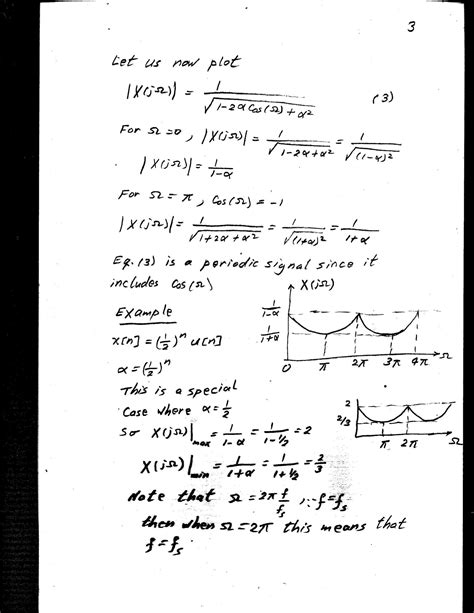 3
Let us now plot
|X(jΩ)| = 1/√(1-2α Cos(Ω)+α²) (3)
For Ω=0, |X(jΩ)| = 1/√(1-2α+α²) = 1/√((1-α)²)
|X(jΩ)| = 1/(1-α)
For Ω=π, Cos(Ω) = -1
|X(jΩ)| = 1/√(1+2α+α²) = 1/√((1+α)²) = 1/(1+α)
Eq. (3) is a periodic signal since it
includes Cos(Ω)
X(jΩ)
1/(1-α)
1/(1+α)
0 π 2π 3π 4π Ω
Example
x[n] = (1/2)ⁿ u[n]
α = (1/2)ⁿ
This is a special
Case where α = 1/2
So X(jΩ)|max = 1/(1-α) = 1/(1-1/2) = 2
2
2/3
π 2π Ω
X(jΩ)|min = 1/(1+α) = 1/(1+1/2) = 2/3
Note that Ω = 2π f/fs, ∵ f=fs
then when Ω = 2π this means that
f = fs